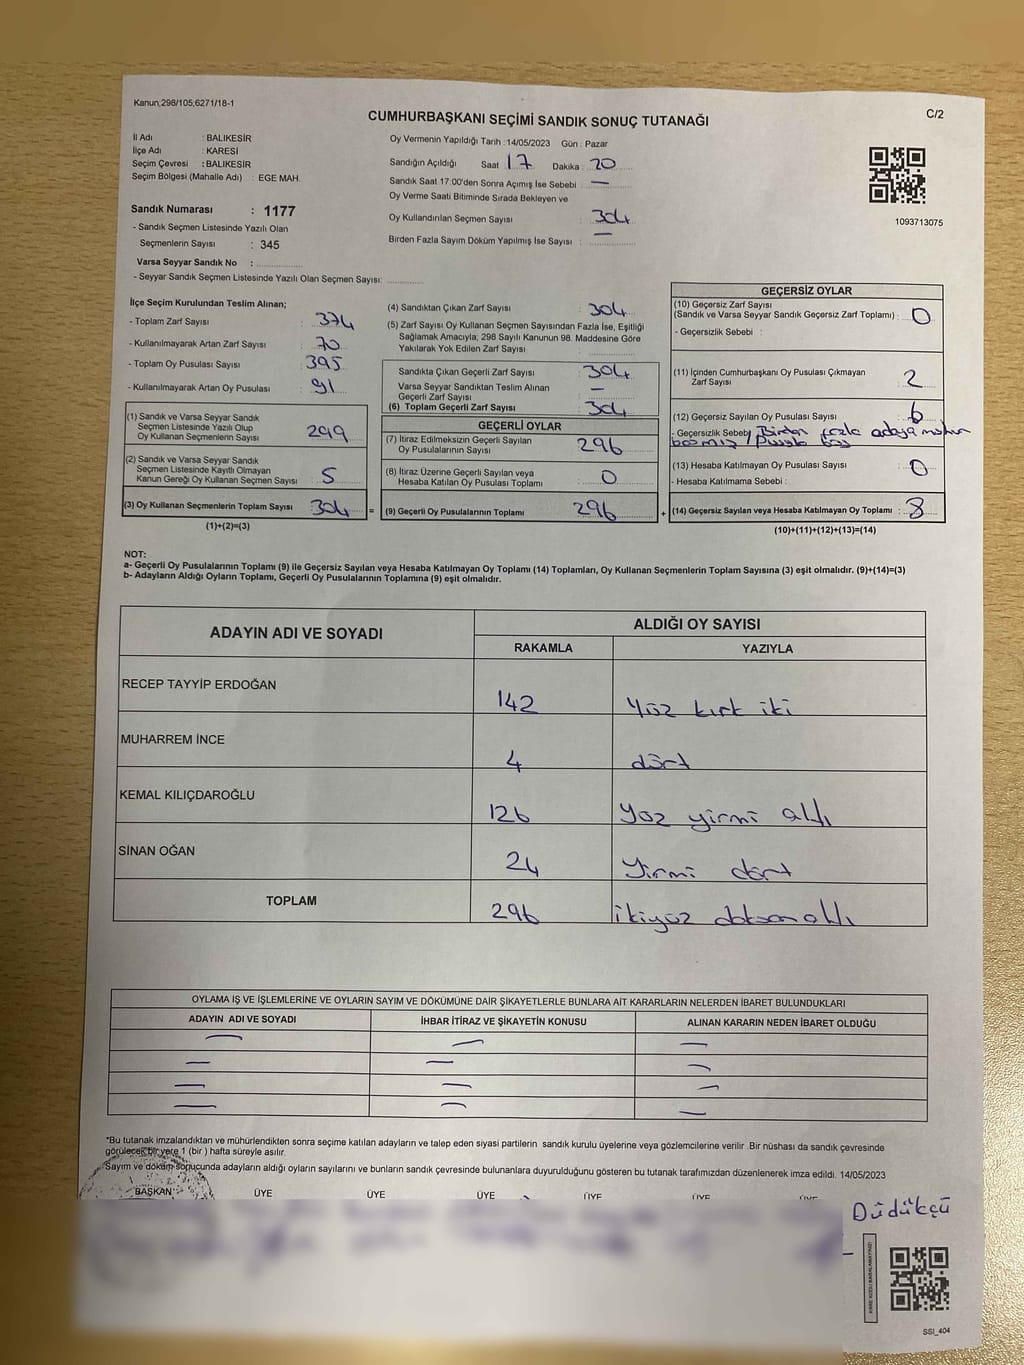 Kanun,298/105,6271/18-1
C/2
CUMHURBAŞKANI SEÇİMİ SANDIK SONUÇ TUTANAĞI
İl Adı : BALIKESİR
İlçe Adı : KARESİ
Seçim Çevresi : BALIKESİR
Seçim Bölgesi (Mahalle Adı) : EGE MAH.
Sandık Numarası : 1177
- Sandık Seçmen Listesinde Yazılı Olan
Seçmenlerin Sayısı : 345
Varsa Seyyar Sandık No :
- Seyyar Sandık Seçmen Listesinde Yazılı Olan Seçmen Sayısı:
Oy Vermenin Yapıldığı Tarih : 14/05/2023 Gün : Pazar
Sandığın Açıldığı Saat 17 Dakika 20
Sandık Saat 17:00'den Sonra Açımış İse Sebebi —
Oy Verme Saati Bitiminde Sırada Bekleyen ve
Oy Kullandırılan Seçmen Sayısı 304
Birden Fazla Sayım Döküm Yapılmış İse Sayısı : —
1093713075
İlçe Seçim Kurulundan Teslim Alınan;
- Toplam Zarf Sayısı : 374
- Kullanılmayarak Artan Zarf Sayısı : 70
- Toplam Oy Pusulası Sayısı : 395
- Kullanılmayarak Artan Oy Pusulası : 91
(1) Sandık ve Varsa Seyyar Sandık
Seçmen Listesinde Yazılı Olup
Oy Kullanan Seçmenlerin Sayısı : 299
(2) Sandık ve Varsa Seyyar Sandık
Seçmen Listesinde Kayıtlı Olmayan
Kanun Gereği Oy Kullanan Seçmen Sayısı : 5
(3) Oy Kullanan Seçmenlerin Toplam Sayısı : 304 =
(1)+(2)=(3)
(4) Sandıktan Çıkan Zarf Sayısı : 304
(5) Zarf Sayısı Oy Kullanan Seçmen Sayısından Fazla İse, Eşitliği
Sağlamak Amacıyla, 298 Sayılı Kanunun 98. Maddesine Göre
Yakılarak Yok Edilen Zarf Sayısı :
Sandıkta Çıkan Geçerli Zarf Sayısı : 304
Varsa Seyyar Sandıktan Teslim Alınan
Geçerli Zarf Sayısı : —
(6) Toplam Geçerli Zarf Sayısı : 304
GEÇERLİ OYLAR
(7) İtiraz Edilmeksizin Geçerli Sayılan
Oy Pusulalarının Sayısı : 296
(8) İtiraz Üzerine Geçerli Sayılan veya
Hesaba Katılan Oy Pusulası Toplamı : 0
(9) Geçerli Oy Pusulalarının Toplamı : 296 +
GEÇERSİZ OYLAR
(10) Geçersiz Zarf Sayısı
(Sandık ve Varsa Seyyar Sandık Geçersiz Zarf Toplamı) : 0
- Geçersizlik Sebebi :
(11) İçinden Cumhurbaşkanı Oy Pusulası Çıkmayan
Zarf Sayısı : 2
(12) Geçersiz Sayılan Oy Pusulası Sayısı : 6
- Geçersizlik Sebebi : Birden fazla adaya mühür
basmış / Pusula boş
(13) Hesaba Katılmayan Oy Pusulası Sayısı : 0
- Hesaba Katılmama Sebebi :
(14) Geçersiz Sayılan veya Hesaba Katılmayan Oy Toplamı : 8
(10)+(11)+(12)+(13)=(14)
NOT:
a- Geçerli Oy Pusulalarının Toplamı (9) ile Geçersiz Sayılan veya Hesaba Katılmayan Oy Toplamı (14) Toplamları, Oy Kullanan Seçmenlerin Toplam Sayısına (3) eşit olmalıdır. (9)+(14)=(3)
b- Adayların Aldığı Oyların Toplamı, Geçerli Oy Pusulalarının Toplamına (9) eşit olmalıdır.
ADAYIN ADI VE SOYADI ALDIĞI OY SAYISI
RAKAMLA YAZIYLA
RECEP TAYYİP ERDOĞAN 142 Yüz kırk iki
MUHARREM İNCE 4 dört
KEMAL KILIÇDAROĞLU 126 Yüz yirmi altı
SİNAN OĞAN 24 Yirmi dört
TOPLAM 296 ikiyüz doksan altı
OYLAMA İŞ VE İŞLEMLERİNE VE OYLARIN SAYIM VE DÖKÜMÜNE DAİR ŞİKAYETLERLE BUNLARA AİT KARARLARIN NELERDEN İBARET BULUNDUKLARI
ADAYIN ADI VE SOYADI İHBAR İTİRAZ VE ŞİKAYETİN KONUSU ALINAN KARARIN NEDEN İBARET OLDUĞU
— — —
— — —
— — —
— — —
*Bu tutanak imzalandıktan ve mühürlendikten sonra seçime katılan adayların ve talep eden siyasi partilerin sandık kurulu üyelerine veya gözlemcilerine verilir .Bir nüshası da sandık çevresinde
görülecek bir yere 1 (bir ) hafta süreyle asılır.
Sayım ve döküm sonucunda adayların aldığı oyların sayılarını ve bunların sandık çevresinde bulunanlara duyurulduğunu gösteren bu tutanak tarafımızdan düzenlenerek imza edildi. 14/05/2023
BAŞKAN ÜYE ÜYE ÜYE ÜYE ÜYE ÜYE
Düdükçü
SSI_404